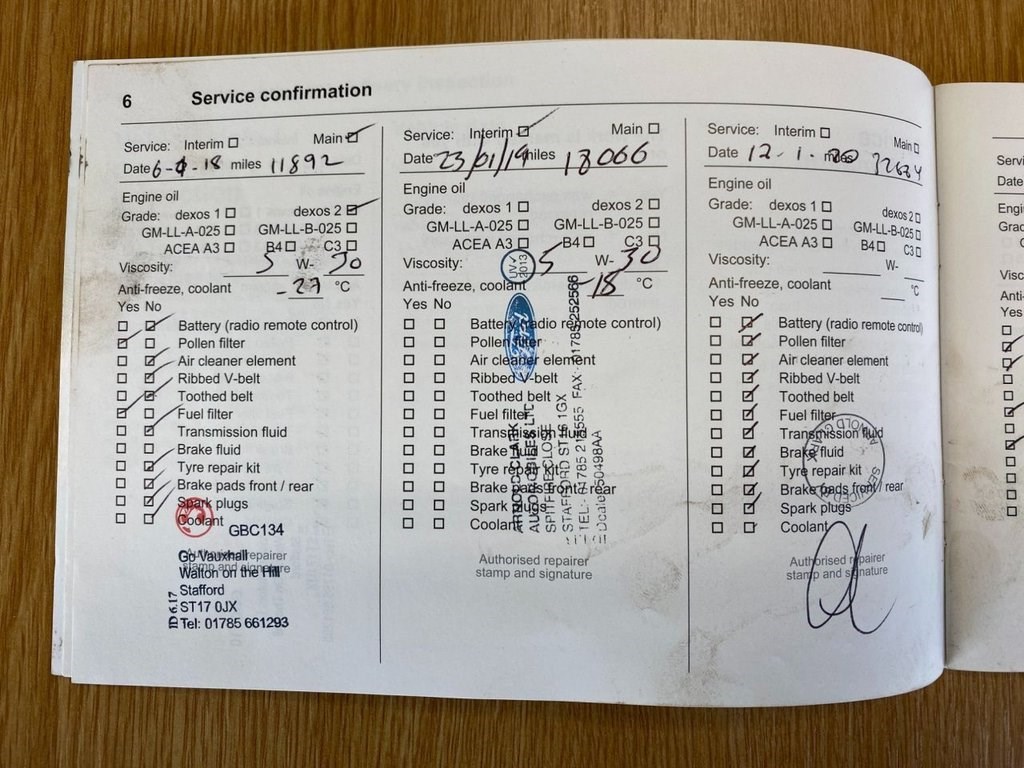 6 Service confirmation
Service: Interim Main
Date 6-4-18 miles 11892
Engine oil
Grade: dexos 1 dexos 2
GM-LL-A-025 GM-LL-B-025
ACEA A3 B4 C3
Viscosity: 5 W- 30
Anti-freeze, coolant -27 °C
Yes No
Battery (radio remote control)
Pollen filter
Air cleaner element
Ribbed V-belt
Toothed belt
Fuel filter
Transmission fluid
Brake fluid
Tyre repair kit
Brake pads front / rear
Spark plugs
Coolant
GBC134
Authorised repairer
stamp and signature
Go Vauxhall
Walton on the Hill
Stafford
ST17 0JX
Tel: 01785 661293
ID 6.17
Service: Interim Main
Date 23/01/19 miles 18066
Engine oil
Grade: dexos 1 dexos 2
GM-LL-A-025 GM-LL-B-025
ACEA A3 B4 C3
Viscosity: 5 W- 30
Anti-freeze, coolant -18 °C
Yes No
Battery (radio remote control)
Pollen filter
Air cleaner element
Ribbed V-belt
Toothed belt
Fuel filter
Transmission fluid
Brake fluid
Tyre repair kit
Brake pads front / rear
Spark plugs
Coolant
UV
2013
Ford
ARNOLD CLARK
AUTOMOBILES LTD
SPITFIRE CLOSE
STAFFORD ST16 1GX
FAX: 01785252566
Authorised repairer
stamp and signature
Service: Interim Main
Date 12.1.20 miles
Engine oil
Grade: dexos 1 dexos 2
GM-LL-A-025 GM-LL-B-025
ACEA A3 B4 C3
Viscosity: W-
Anti-freeze, coolant °C
Yes No
Battery (radio remote control)
Pollen filter
Air cleaner element
Ribbed V-belt
Toothed belt
Fuel filter
Transmission fluid
Brake fluid
Tyre repair kit
Brake pads front / rear
Spark plugs
Coolant
ARNOLD CLARK
SERVICED
Authorised repairer
stamp and signature
Date
Yes